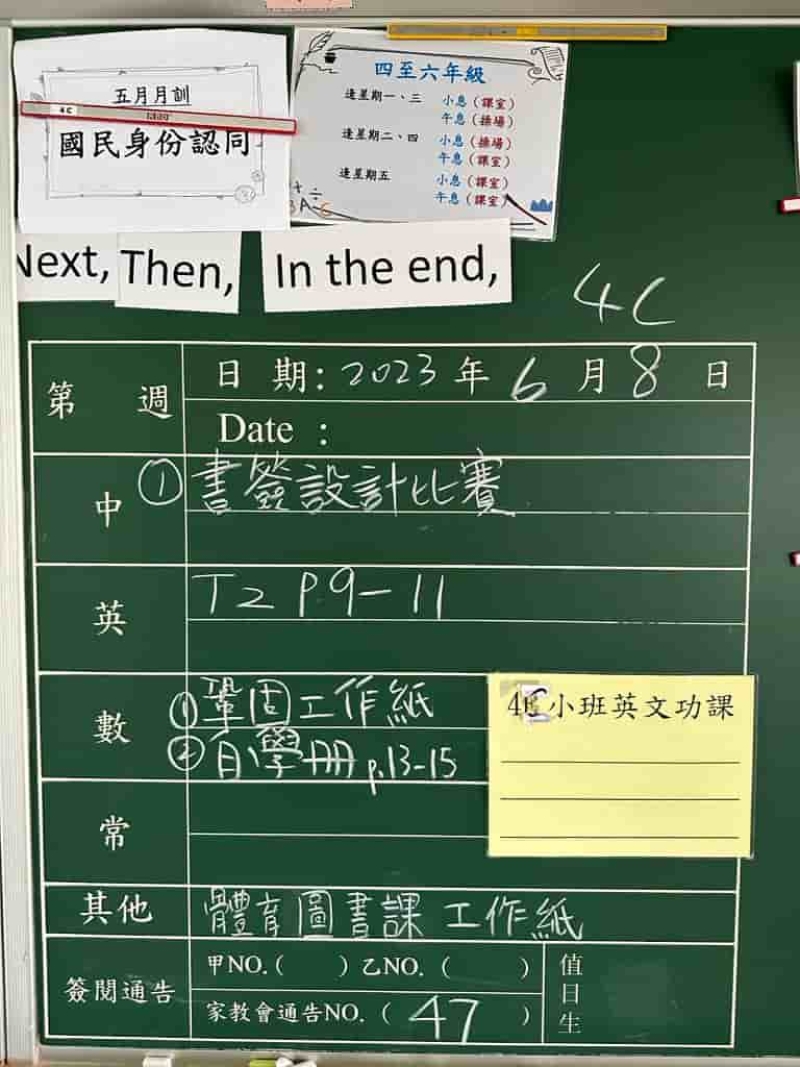 五月月訓
4C
國民身份認同
四至六年級
逢星期一、三 小息（課室）
午息（操場）
逢星期二、四 小息（操場）
午息（課室）
逢星期五 小息（課室）
午息（課室）
Next, Then, In the end,
4C
第 週 日 期：2023 年 6 月 8 日
Date ：
中 ① 書簽設計比賽
英 T2 P.9-11
數 ① 鞏固工作紙
② 自學冊 p.13-15
4C 小班英文功課
常
其他 體育圖書課 工作紙
簽閱通告 甲NO.（ ）乙NO.（ ） 值日生
家教會通告NO.（ 47 ）